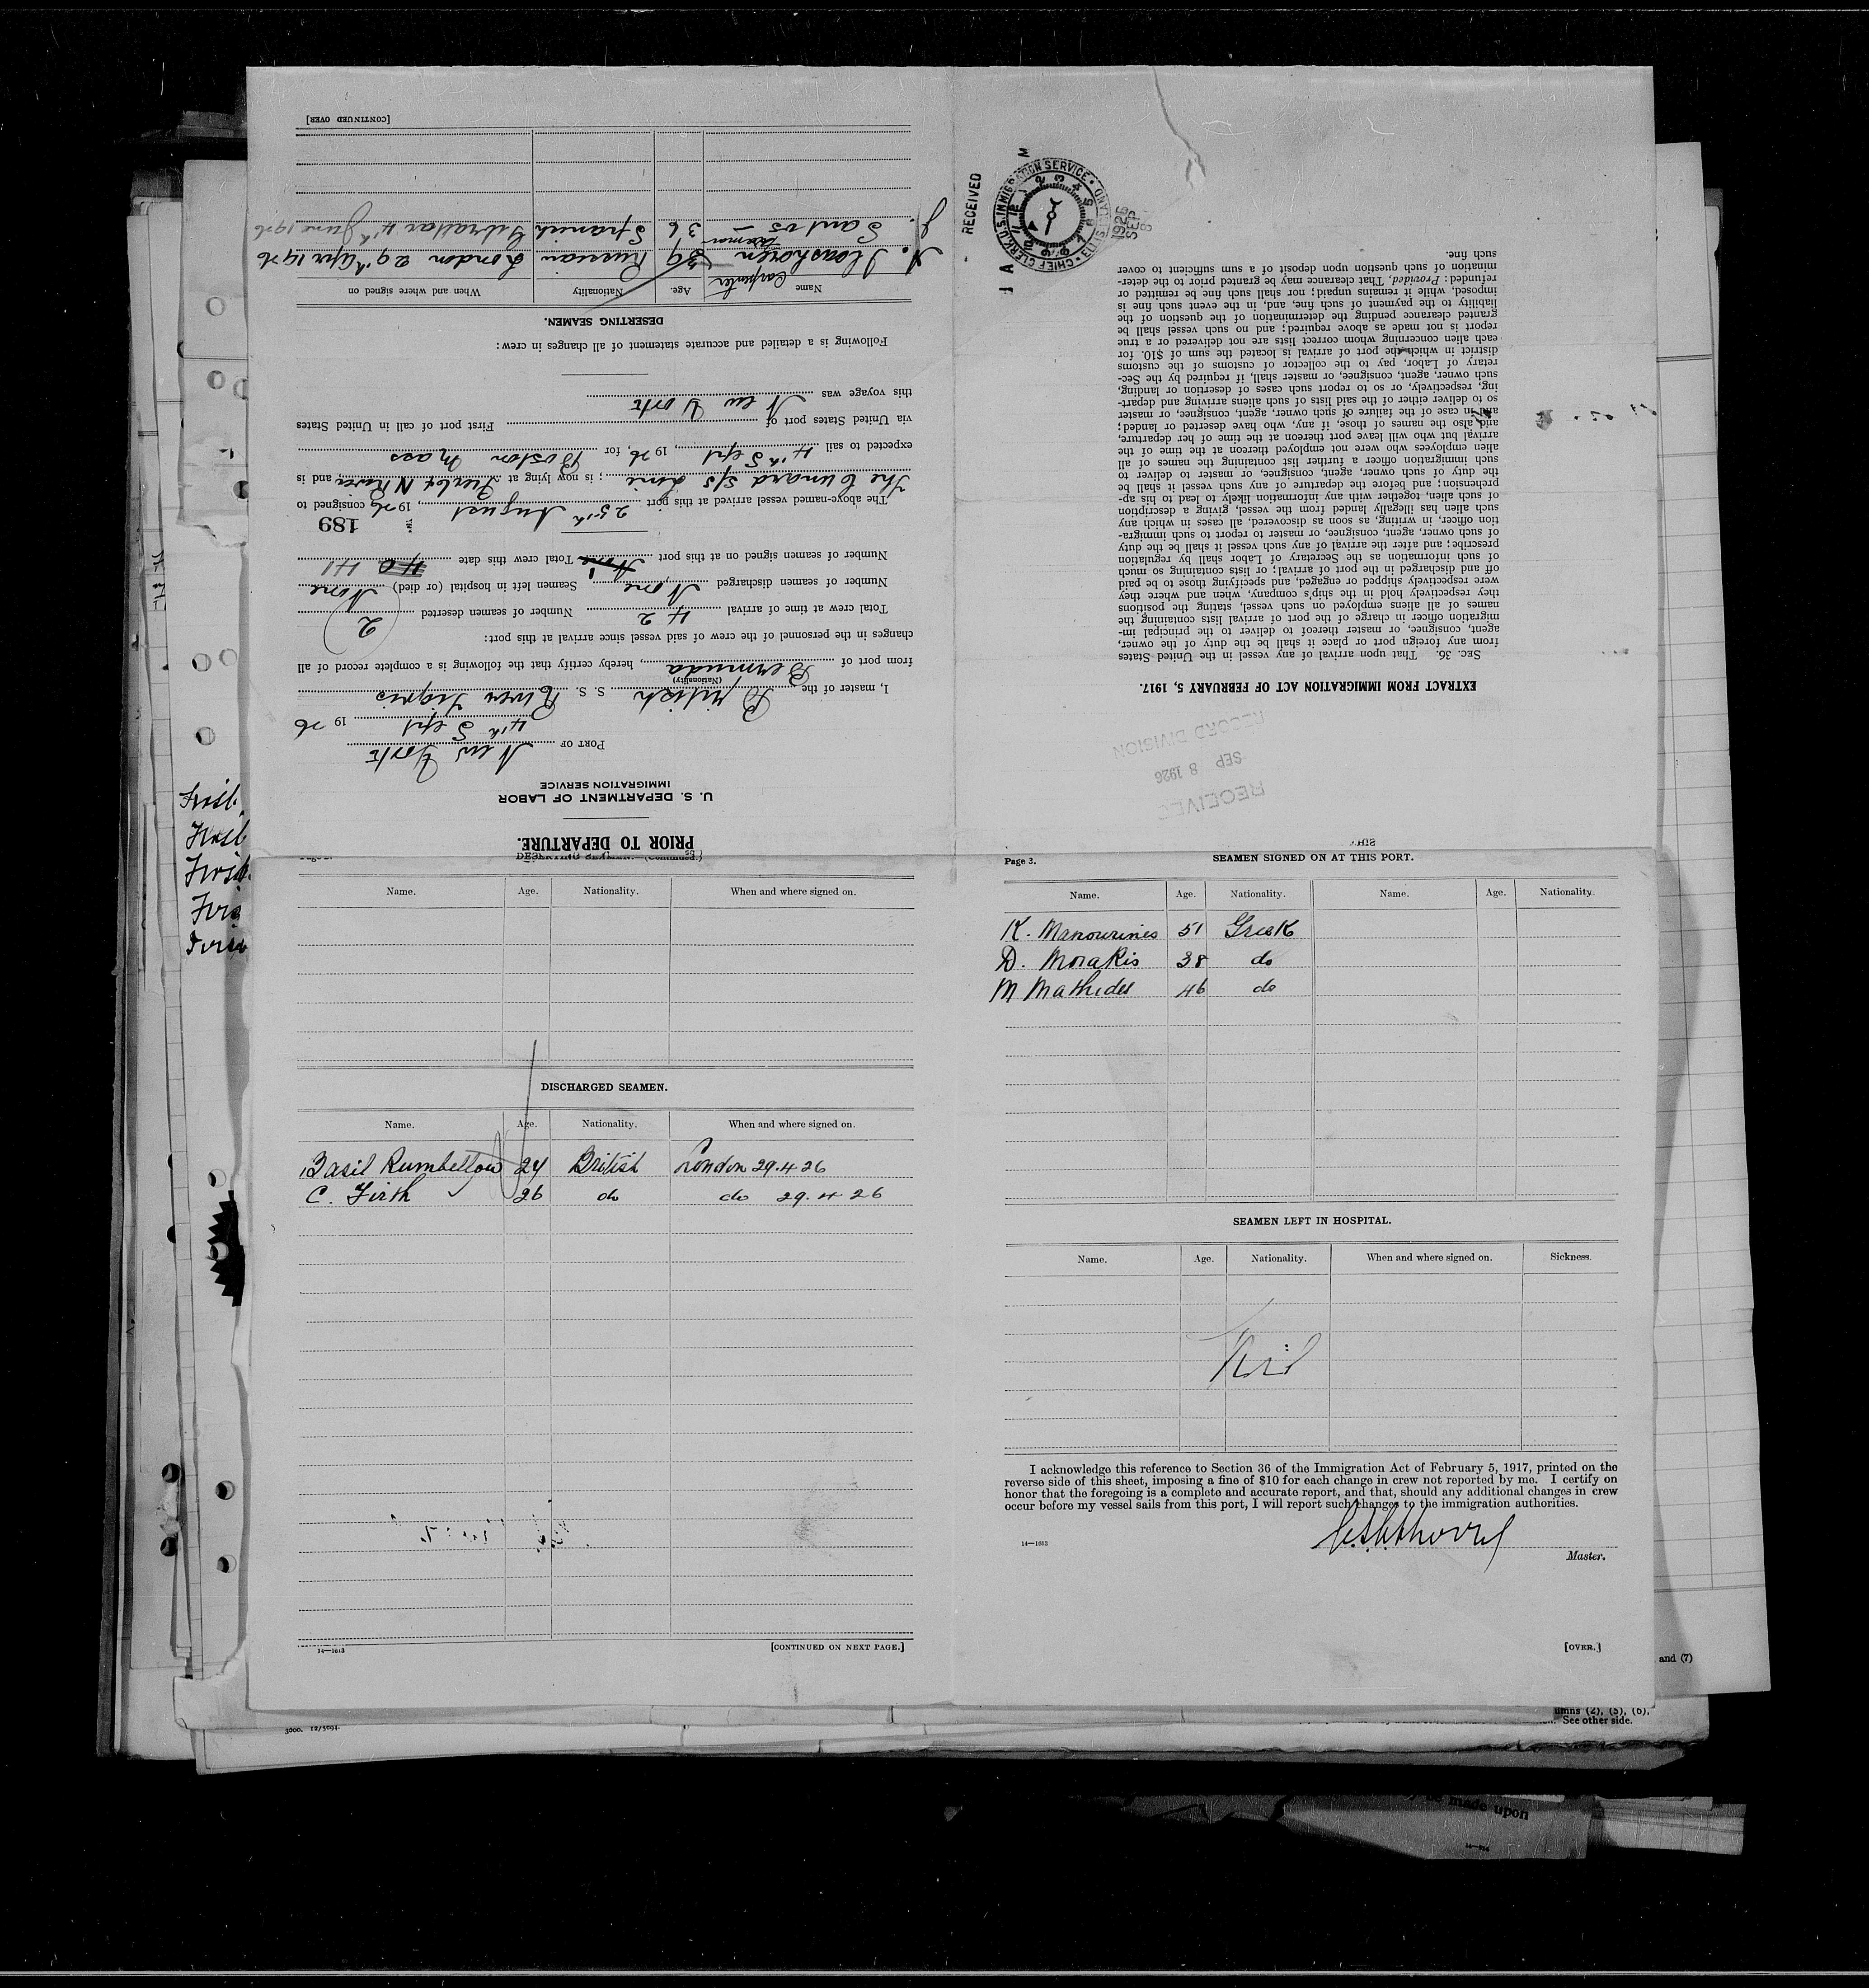 PRIOR TO DEPARTURE.
U. S. DEPARTMENT OF LABOR
IMMIGRATION SERVICE
PORT OF New York
4th Sept 1926
I, master of the British S. S. River Tigris
(Nationality)
from port of Bermuda, hereby certify that the following is a complete record of all
changes in the personnel of the crew of said vessel since arrival at this port:
Total crew at time of arrival 42 Number of seamen deserted 2
Number of seamen discharged None Seamen left in hospital (or died) None
Number of seamen signed on at this port Total crew this date 40 41
189
The above-named vessel arrived at this port 25th August, 1926, consigned to
The Cunard S/S Line; is now lying at N River, and is
expected to sail 4th Sept, 1926, for Boston Mass
via United States port of First port of call in United States
this voyage was New York
Following is a detailed and accurate statement of all changes in crew:
DESERTING SEAMEN.
Name Age. Nationality When and where signed on
Carpenter 39 Russian London 29th Apr 1926
J. Santos 36 Spanish Gibraltar 4th June 1926
[CONTINUED OVER]
EXTRACT FROM IMMIGRATION ACT OF FEBRUARY 5, 1917.
SEC. 36. That upon arrival of any vessel in the United States
from any foreign port or place it shall be the duty of the owner,
agent, consignee, or master thereof to deliver to the principal im-
migration officer in charge of the port of arrival lists containing the
names of all aliens employed on such vessel, stating the positions
they respectively hold in the ship's company, when and where they
were respectively shipped or engaged, and specifying those to be paid
off and discharged in the port of arrival; or lists containing so much
of such information as the Secretary of Labor shall by regulation
prescribe; and after the arrival of any such vessel it shall be the duty
of such owner, agent, consignee, or master to report to such immigra-
tion officer, in writing, as soon as discovered, all cases in which any
such alien has illegally landed from the vessel, giving a description
of such alien, together with any information likely to lead to his ap-
prehension; and before the departure of any such vessel it shall be
the duty of such owner, agent, consignee, or master to deliver to
such immigration officer a further list containing the names of all
alien employees who were not employed thereon at the time of the
arrival but who will leave port thereon at the time of her departure,
and also the names of those, if any, who have deserted or landed;
and in case of the failure of such owner, agent, consignee, or master
so to deliver either of the said lists of such aliens arriving and depart-
ing, respectively, or so to report such cases of desertion or landing,
such owner, agent, consignee, or master shall, if required by the Sec-
retary of Labor, pay to the collector of customs of the customs
district in which the port of arrival is located the sum of $10. for
each alien concerning whom correct lists are not delivered or a true
report is not made as above required; and no such vessel shall be
granted clearance pending the determination of the question of the
liability to the payment of such fine, and, in the event such fine is
imposed, while it remains unpaid; nor shall such fine be remitted or
refunded: Provided, That clearance may be granted prior to the deter-
mination of such question upon deposit of a sum sufficient to cover
such fine.
RECEIVED
SEP 8 1926
RECORD DIVISION
RECEIVED
CHIEF CLERK U.S. IMMIGRATION SERVICE
ELLIS ISLAND
1926
SEP
8
DESERTING SEAMEN—(Continued.)
Name. Age. Nationality. When and where signed on.
DISCHARGED SEAMEN.
Name. Age. Nationality. When and where signed on.
Basil Rumbellow 24 British London 29.4.26
C. Firth 26 do do 29.4.26
14—1613
[CONTINUED ON NEXT PAGE.]
Page 3.
SEAMEN SIGNED ON AT THIS PORT.
Name. Age. Nationality. Name. Age. Nationality.
K. Manousinis 51 Greek
D. Morakis 38 do
M 46 do
SEAMEN LEFT IN HOSPITAL.
Name. Age. Nationality. When and where signed on. Sickness.
Nil
I acknowledge this reference to Section 36 of the Immigration Act of February 5, 1917, printed on the
reverse side of this sheet, imposing a fine of $10 for each change in crew not reported by me. I certify on
honor that the foregoing is a complete and accurate report, and that, should any additional changes in crew
occur before my vessel sails from this port, I will report such changes to the immigration authorities.
14—1613
Master.
[OVER.]
and (7)
umns (2), (5), (6),
See other side.
3000. 12/5091.
be made upon